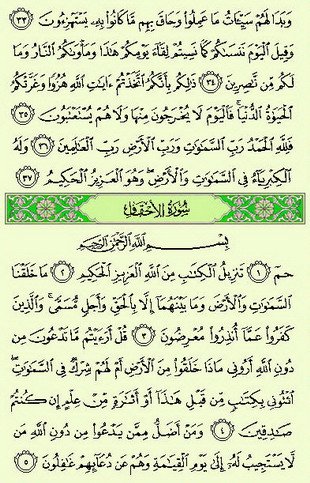 وَبَدَا لَهُمْ سَيِّـَٔاتُ مَا عَمِلُوا۟ وَحَاقَ بِهِم مَّا كَانُوا۟ بِهِۦ يَسْتَهْزِءُونَ ٣٣
وَقِيلَ ٱلْيَوْمَ نَنسَىٰكُمْ كَمَا نَسِيتُمْ لِقَآءَ يَوْمِكُمْ هَـٰذَا وَمَأْوَىٰكُمُ ٱلنَّارُ وَمَا
لَكُم مِّن نَّـٰصِرِينَ ٣٤ ذَٰلِكُم بِأَنَّكُمُ ٱتَّخَذْتُمْ ءَايَـٰتِ ٱللَّهِ هُزُوًا وَغَرَّتْكُمُ
ٱلْحَيَوٰةُ ٱلدُّنْيَا ۚ فَٱلْيَوْمَ لَا يُخْرَجُونَ مِنْهَا وَلَا هُمْ يُسْتَعْتَبُونَ ٣٥
فَلِلَّهِ ٱلْحَمْدُ رَبِّ ٱلسَّمَـٰوَٰتِ وَرَبِّ ٱلْأَرْضِ رَبِّ ٱلْعَـٰلَمِينَ ٣٦ وَلَهُ
ٱلْكِبْرِيَآءُ فِى ٱلسَّمَـٰوَٰتِ وَٱلْأَرْضِ ۖ وَهُوَ ٱلْعَزِيزُ ٱلْحَكِيمُ ٣٧
سُورَةُ الأَحْقَافِ
بِسْمِ ٱللَّهِ ٱلرَّحْمَـٰنِ ٱلرَّحِيمِ
حمٓ ١ تَنزِيلُ ٱلْكِتَـٰبِ مِنَ ٱللَّهِ ٱلْعَزِيزِ ٱلْحَكِيمِ ٢ مَا خَلَقْنَا
ٱلسَّمَـٰوَٰتِ وَٱلْأَرْضَ وَمَا بَيْنَهُمَآ إِلَّا بِٱلْحَقِّ وَأَجَلٍ مُّسَمًّى ۚ وَٱلَّذِينَ
كَفَرُوا۟ عَمَّآ أُنذِرُوا۟ مُعْرِضُونَ ٣ قُلْ أَرَءَيْتُم مَّا تَدْعُونَ مِن
دُونِ ٱللَّهِ أَرُونِى مَاذَا خَلَقُوا۟ مِنَ ٱلْأَرْضِ أَمْ لَهُمْ شِرْكٌ فِى ٱلسَّمَـٰوَٰتِ ۖ
ٱئْتُونِى بِكِتَـٰبٍ مِّن قَبْلِ هَـٰذَآ أَوْ أَثَـٰرَةٍ مِّنْ عِلْمٍ إِن كُنتُمْ
صَـٰدِقِينَ ٤ وَمَنْ أَضَلُّ مِمَّن يَدْعُوا۟ مِن دُونِ ٱللَّهِ مَن
لَّا يَسْتَجِيبُ لَهُۥٓ إِلَىٰ يَوْمِ ٱلْقِيَـٰمَةِ وَهُمْ عَن دُعَآئِهِمْ غَـٰفِلُونَ ٥